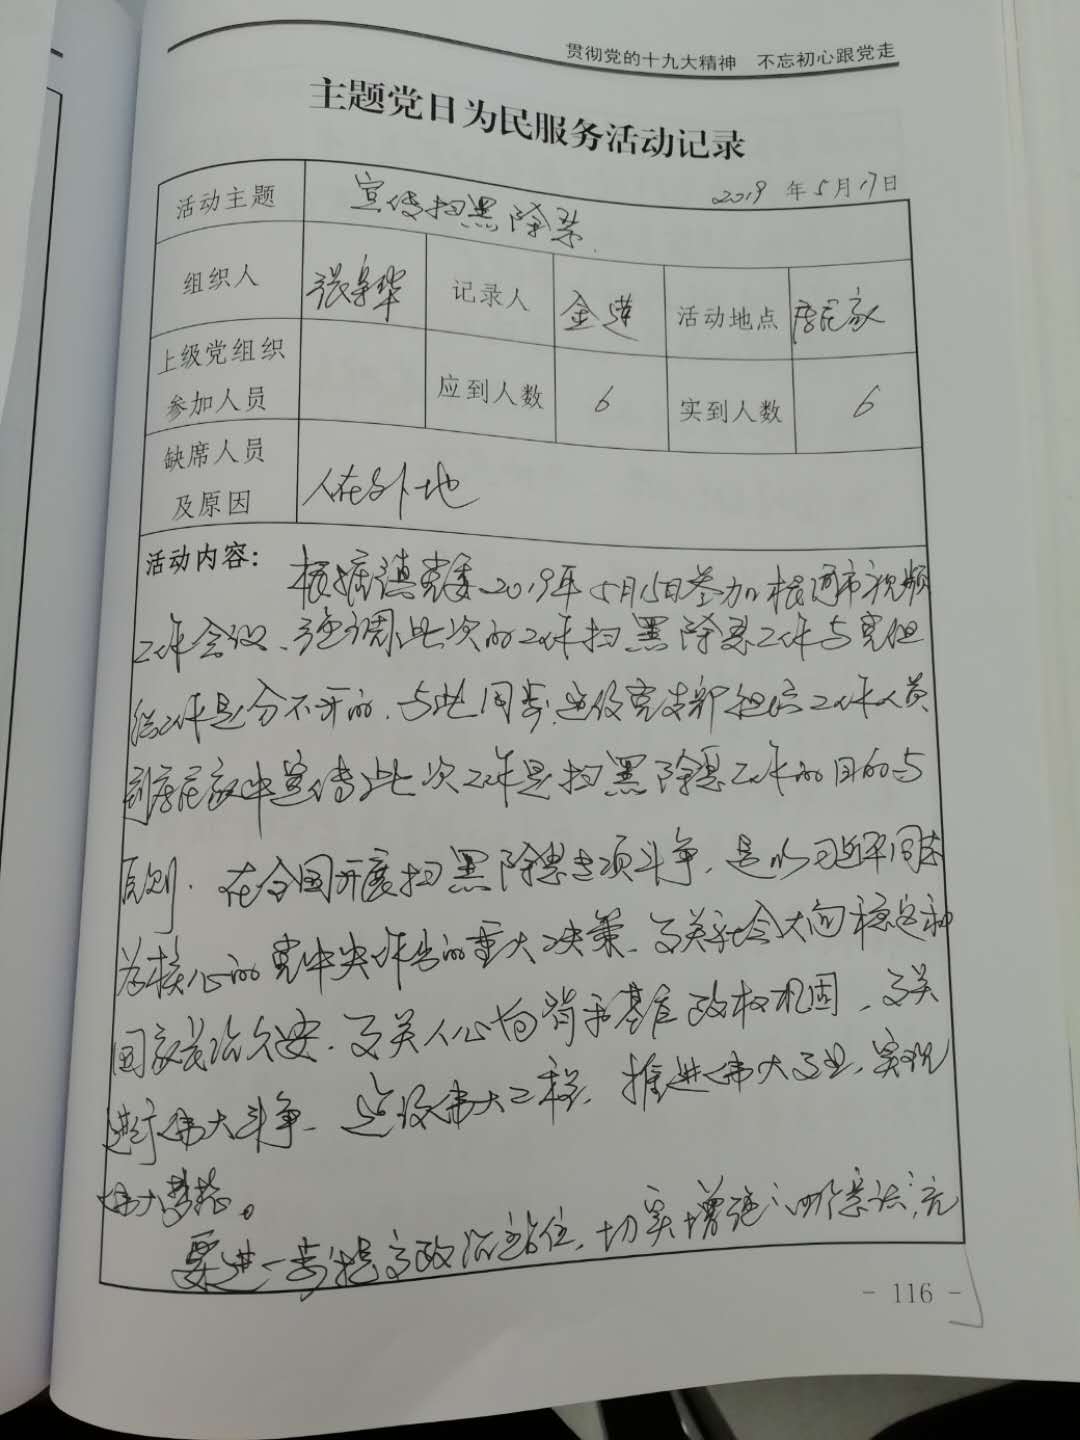 贯彻党的十九大精神 不忘初心跟党走
主题党日为民服务活动记录
2019 年 5 月 17 日
活动主题 宣传扫黑除恶.
组织人 记录人 金莲 活动地点 居民家
上级党组织
参加人员 应到人数 6 实到人数 6
缺席人员
及原因 人在外地
活动内容: 根据镇党委2019年5月15日参加 市视频
工作会议、强调此次的工作扫黑除恶工作与党组
织工作是分不开的.与此同步,党支部组织工作人员
到居民家中宣传此次工作是扫黑除恶工作的目的与
原则.在全国开展扫黑除恶专项斗争,是以习近平同志
为核心的党中央作出的重大决策、事关社会大局稳定和
国家长治久安.事关人心向背和基层政权巩固,事关
进行伟大斗争、建设伟大工程,推进伟大事业,实现
伟大梦想。
要进一步提高政治站位,切实增强“四个意识”,充
- 116 -